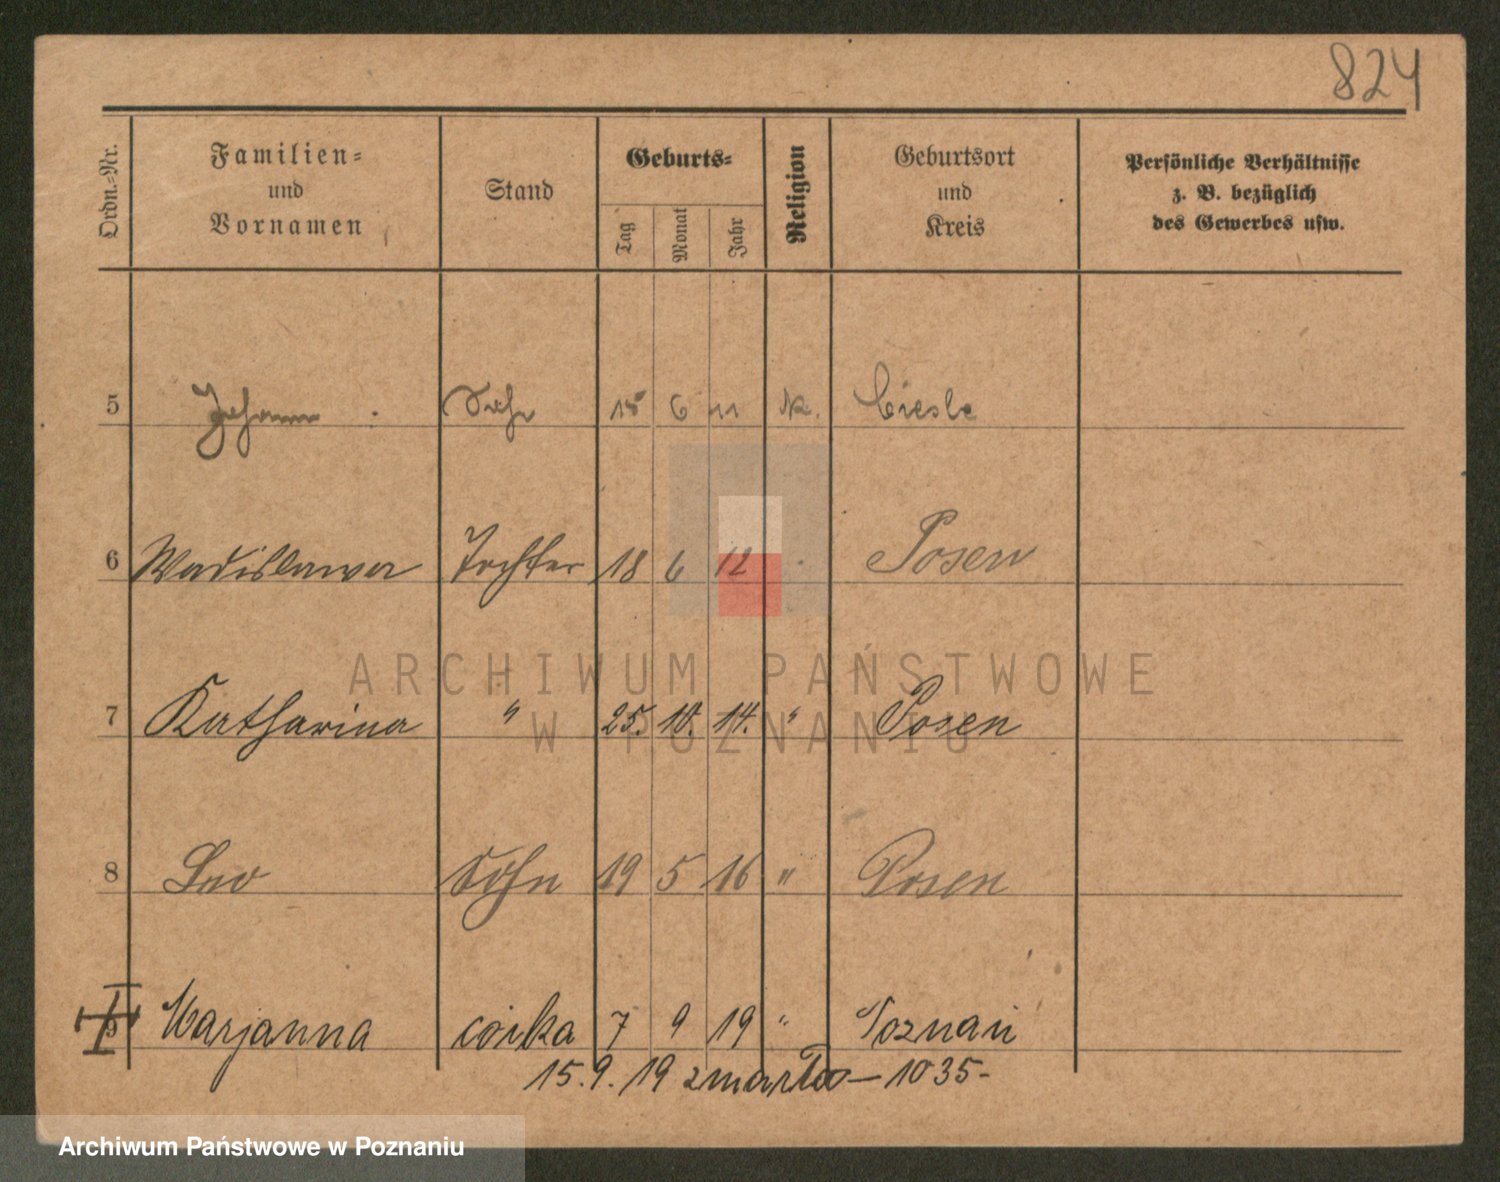 824
Ordn.-Nr. Familien- und Vornamen Stand Geburts- Tag Monat Jahr Religion Geburtsort und Kreis Persönliche Verhältnisse z. B. bezüglich des Gewerbes usw.
5 Johann Sohn 15 6 11 k. Ciesle
6 Wadislawa Tochter 18 6 12 Posen
ARCHIWUM PAŃSTWOWE
W POZNANIU
7 Katharina " 25. 10. 14. " Posen
8 Leo Sohn 19 5 16 " Posen
9 Marjanna córka 7 9 19 " Poznań
15.9.19 zmarła — 1035-
Archiwum Państwowe w Poznaniu